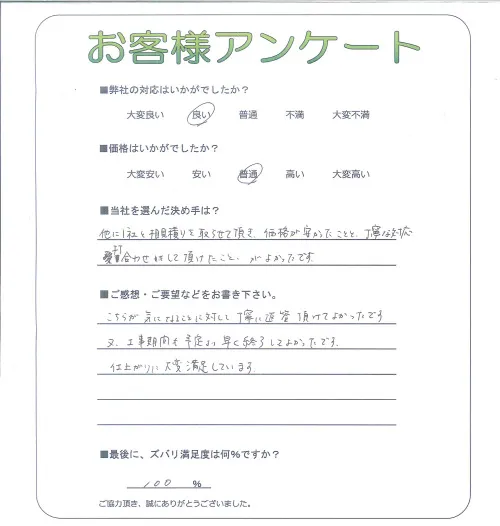 お客様アンケート
■弊社の対応はいかがでしたか?
大変良い 良い 普通 不満 大変不満
■価格はいかがでしたか?
大変安い 安い 普通 高い 大変高い
■当社を選んだ決め手は?
他に1社と相見積りを取らせて頂き、価格が安かったことと、丁寧な対応
打合わせをして頂けたこと、がよかったです
■ご感想・ご要望などをお書き下さい。
こちらが気になることに対して丁寧に返答頂けてよかったです
又、工事期間も予定より早く終了してよかったです。
仕上がりに大変満足しています。
■最後に、ズバリ満足度は何%ですか?
100 %
ご協力頂き、誠にありがとうございました。